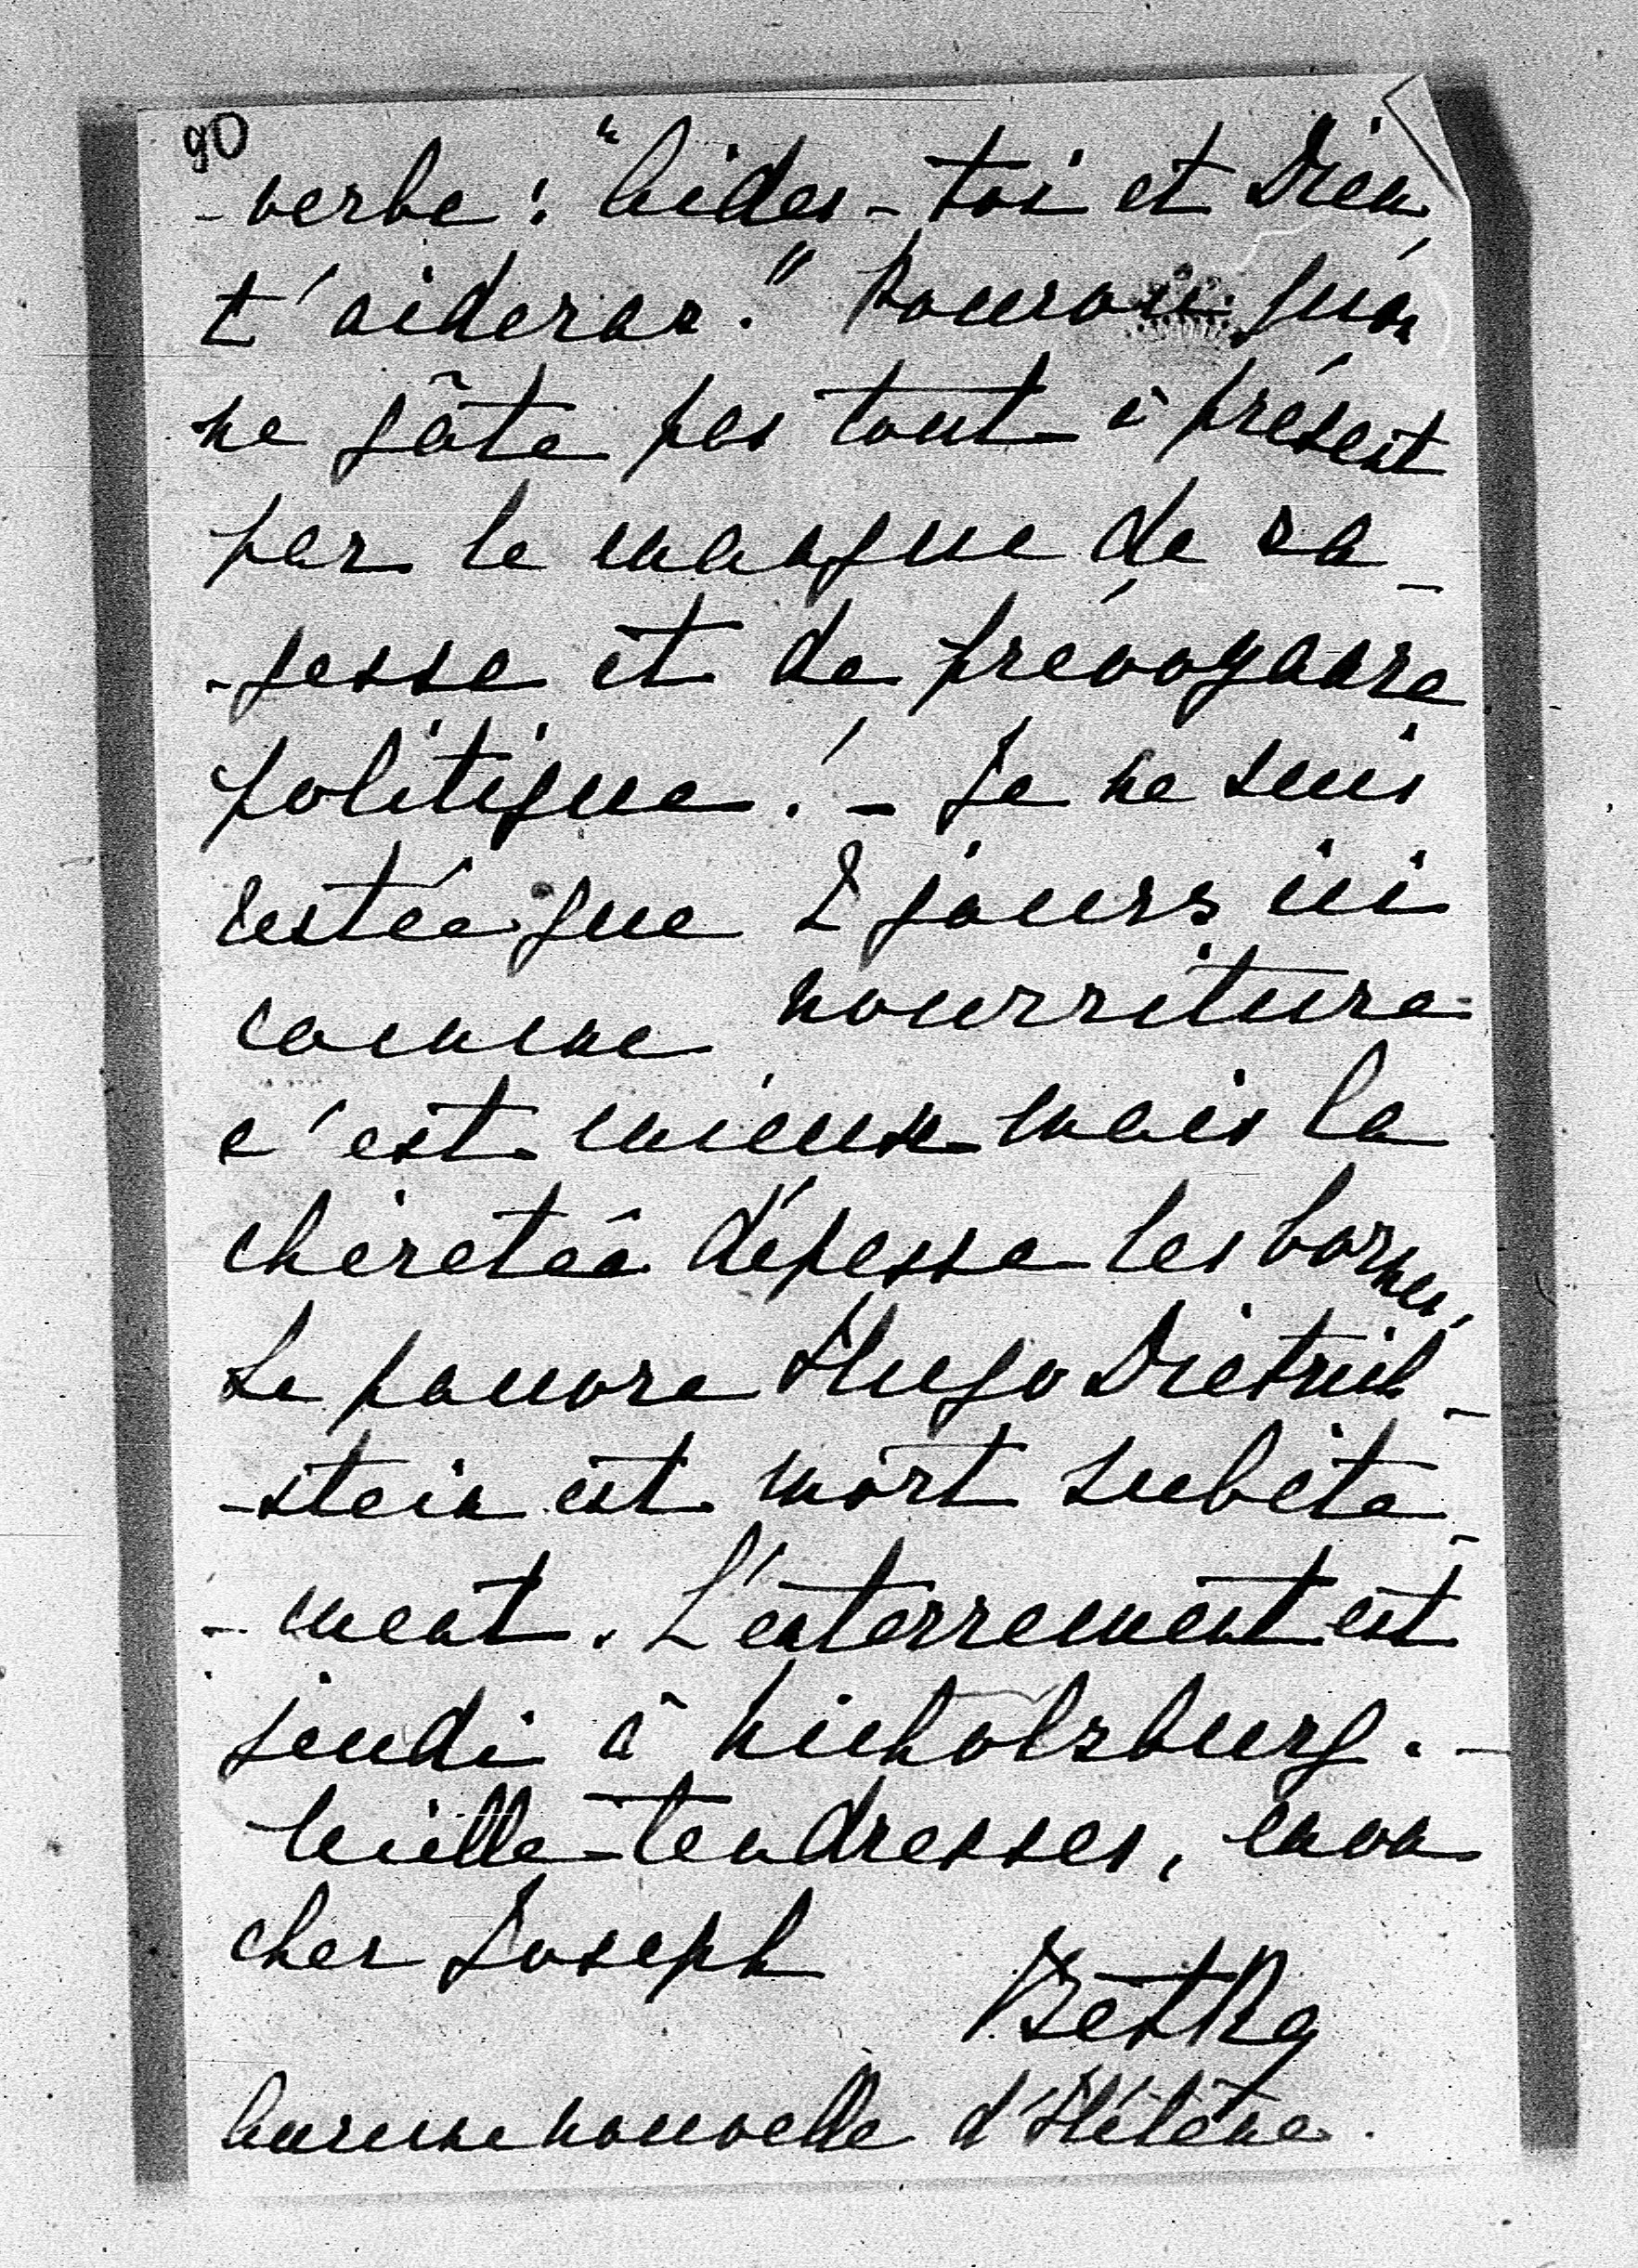 90
-verbe : "Aides-toi et Dieu
t'aideras." Pourvu qu'on
ne gâte pas tout à présent
par le manque de sa-
-gesse et de prévoyance
politique ! - Je ne suis
restée que 2 jours ici
comme nourriture
c'est mieux mais la
chèretée dépasse les bornes,
Le pauvre Hugo Dietrich-
-stein est mort subite-
-ment. L'enterrement est
jeudi à Nicholsburg. -
Mille tendresses, mon
cher Joseph
Betka
Aucune nouvelle d'Hélène.